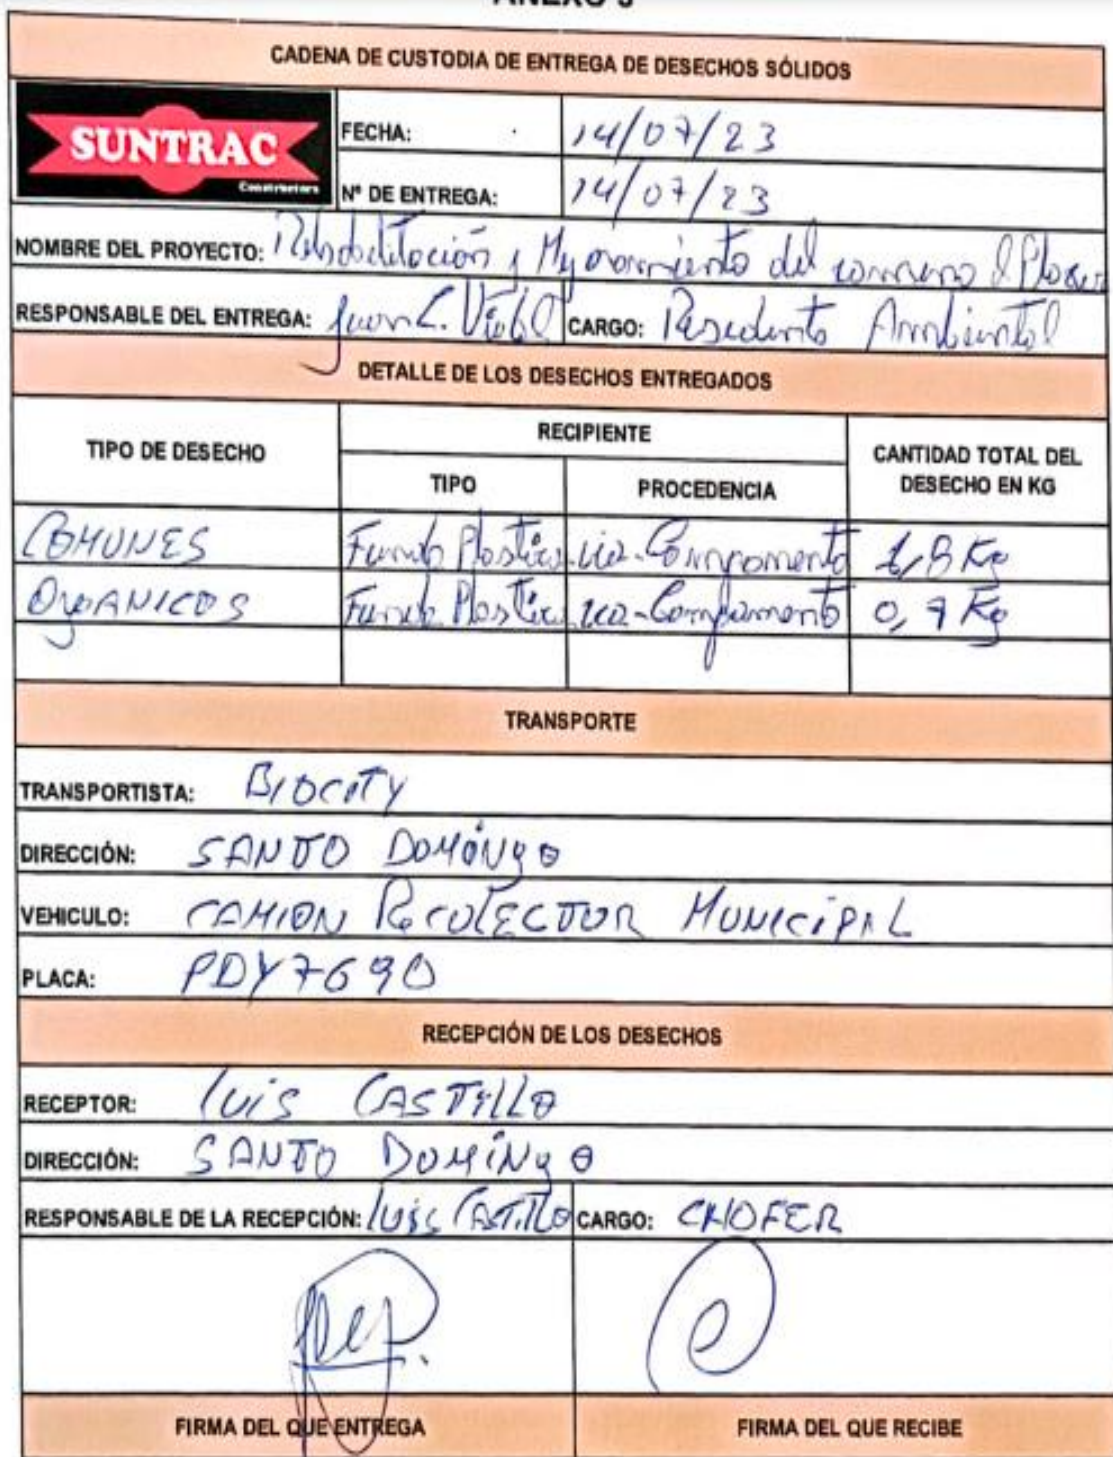 CADENA DE CUSTODIA DE ENTREGA DE DESECHOS SÓLIDOS
SUNTRAC
Constructora
FECHA: 14/07/23
Nº DE ENTREGA: 14/07/23
NOMBRE DEL PROYECTO: Rehabilitación y Mejoramiento del camino
RESPONSABLE DEL ENTREGA: Juan C. CARGO: Residente Ambiental
DETALLE DE LOS DESECHOS ENTREGADOS
TIPO DE DESECHO RECIPIENTE CANTIDAD TOTAL DEL DESECHO EN KG
TIPO PROCEDENCIA
COMUNES Funda Plastica via-Campamento 1,8 Kg
OrgANICOS Funda Plastica via-Campamento 0,7 Kg
TRANSPORTE
TRANSPORTISTA: BIOCITY
DIRECCIÓN: SANTO DOMINGO
VEHICULO: CAMION RecOLECTOR MUNICIPAL
PLACA: PDY7690
RECEPCIÓN DE LOS DESECHOS
RECEPTOR: LUIS CASTILLO
DIRECCIÓN: SANTO DOMINGO
RESPONSABLE DE LA RECEPCIÓN: LUIS CASTILLO CARGO: CHOFER
FIRMA DEL QUE ENTREGA FIRMA DEL QUE RECIBE